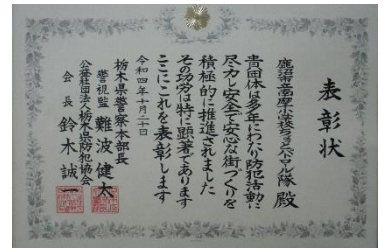 表彰状
鹿沼市立みなみ小学校スクールパトロール隊 殿
貴団体は多年にわたり防犯活動に
尽力し安全で安心な街づくりを
積極的に推進されました
その功労は特に顕著であります
ここにこれを表彰します
令和四年十月二十日
栃木県警察本部長
警視監 難波健太
公益社団法人栃木県防犯協会
会長 鈴木誠一